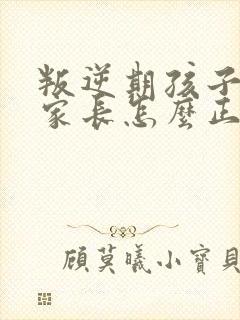 叛逆期孩子
家长怎麼正
顾莫曦小寶貝